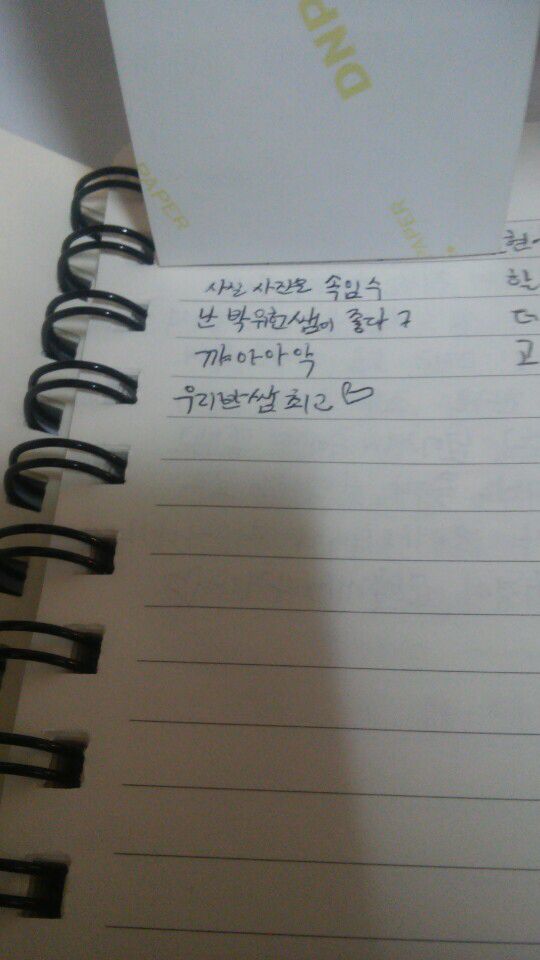 DNP
PAPER
PAPER
현
사실 사진은 속임수
할
난 박위현쌤이 좋다 구
더
꺄아아악
고
우리반쌤 최고